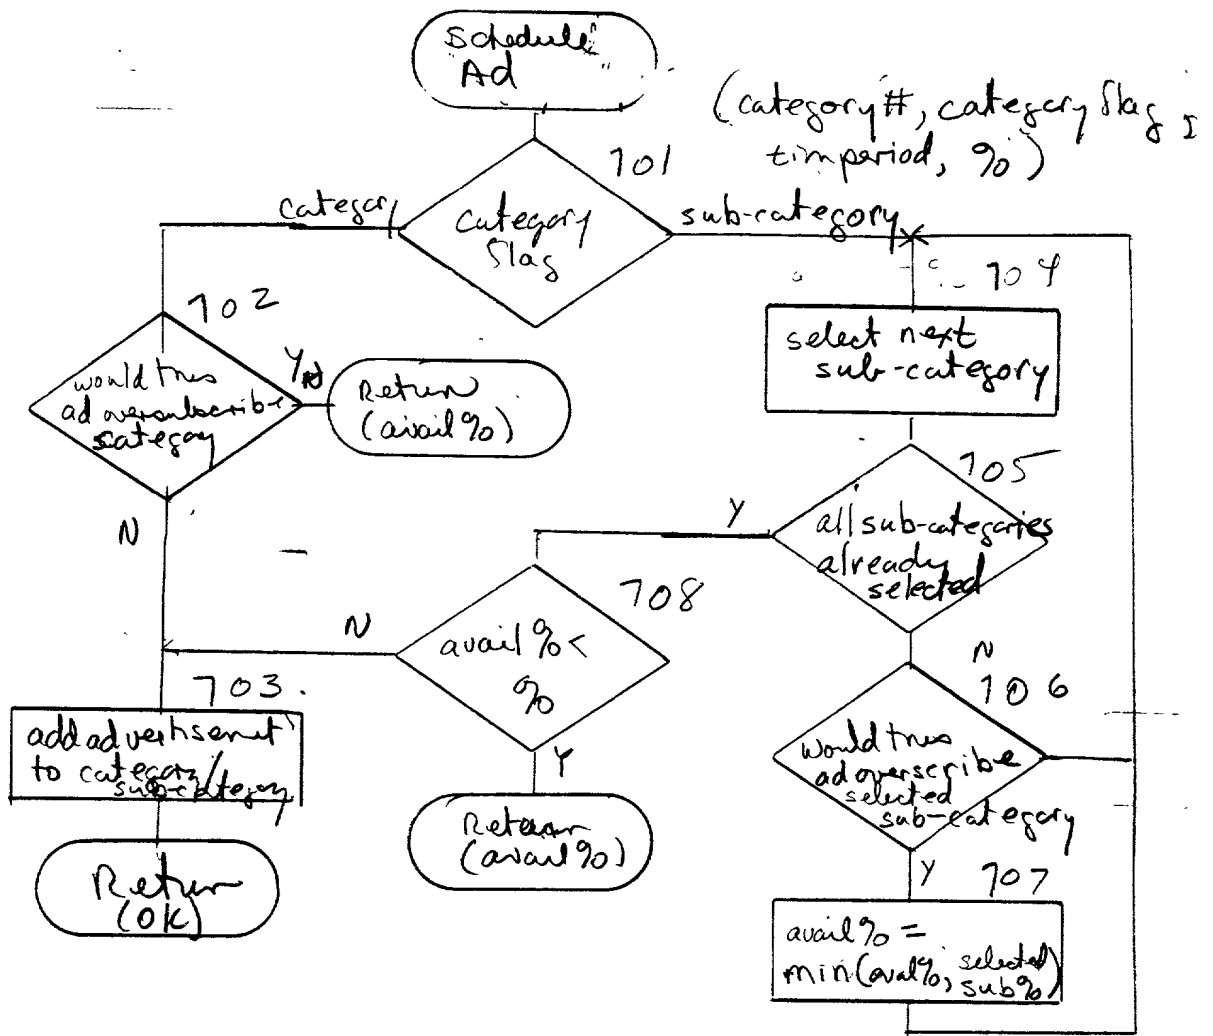 Schedule
Ad
(category#, category flag,
timperiod, %)
701
category
flag
category
sub-category
702
would this
ad oversubscribe
category
Y
Return
(avail%)
N
704
select next
sub-category
705
all sub-categories
already
selected
Y
N
708
avail% <
%
N
Y
Return
(avail%)
703.
add advertisemt
to category/
sub-category
Return
(OK)
706
would this
ad overscribe
selected
sub-category
Y
707
avail% =
min(avail%, selected
sub%)